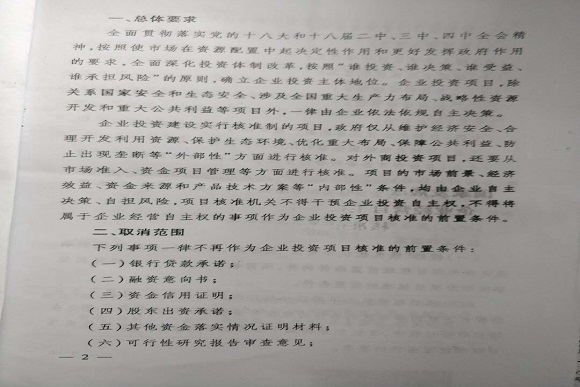 一、总体要求
全面贯彻落实党的十八大和十八届二中、三中、四中全会精
神，按照使市场在资源配置中起决定性作用和更好发挥政府作用
的要求，全面深化投资体制改革，按照“谁投资、谁决策、谁受益、
谁承担风险”的原则，确立企业投资主体地位。企业投资项目，除
关系国家安全和生态安全、涉及全国重大生产力布局、战略性资源
开发和重大公共利益等项目外，一律由企业依法依规自主决策。
企业投资建设实行核准制的项目，政府仅从维护经济安全、合
理开发利用资源、保护生态环境、优化重大布局、保障公共利益、防
止出现垄断等“外部性”方面进行核准。对外商投资项目，还要从
市场准入、资金项目管理等方面进行核准。项目的市场前景、经济
效益、资金来源和产品技术方案等“内部性”条件，均由企业自主
决策、自担风险，项目核准机关不得干预企业投资自主权，不得将
属于企业经营自主权的事项作为企业投资项目核准的前置条件。
二、取消范围
下列事项一律不再作为企业投资项目核准的前置条件：
（一）银行贷款承诺；
（二）融资意向书；
（三）资金信用证明；
（四）股东出资承诺；
（五）其他资金落实情况证明材料；
（六）可行性研究报告审查意见；
— 2 —